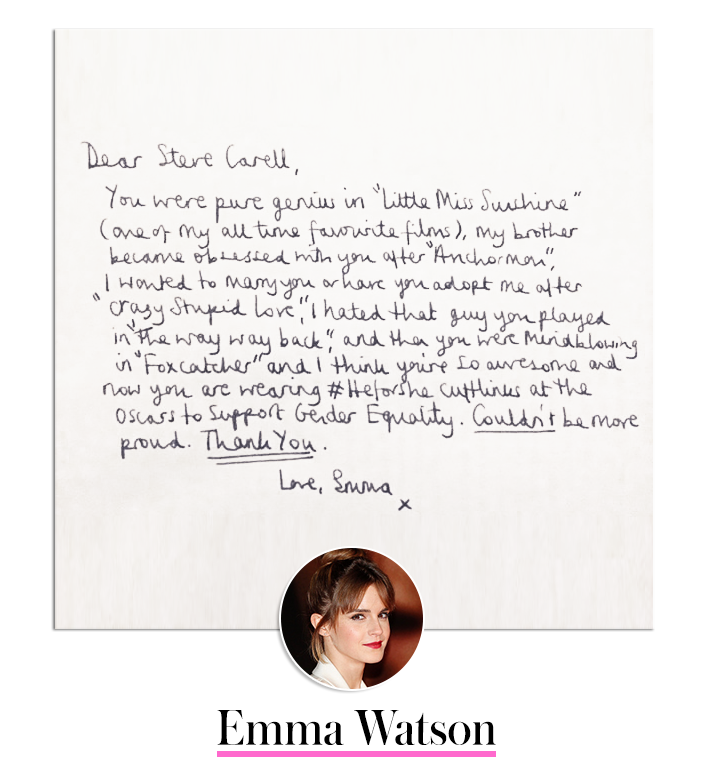 Dear Steve Carell,
You were pure genius in "Little Miss Sunshine"
(one of my all time favourite films), my brother
became obsessed with you after "Anchorman",
I wanted to marry you or have you adopt me after
"Crazy Stupid Love", I hated that guy you played
in "the way way back", and then you were mindblowing
in "Foxcatcher" and I think you're so awesome and
now you are wearing #Heforshe cufflinks at the
Oscars to support Gender Equality. Couldn't be more
proud. Thank You.
Love, Emma
x
Emma Watson